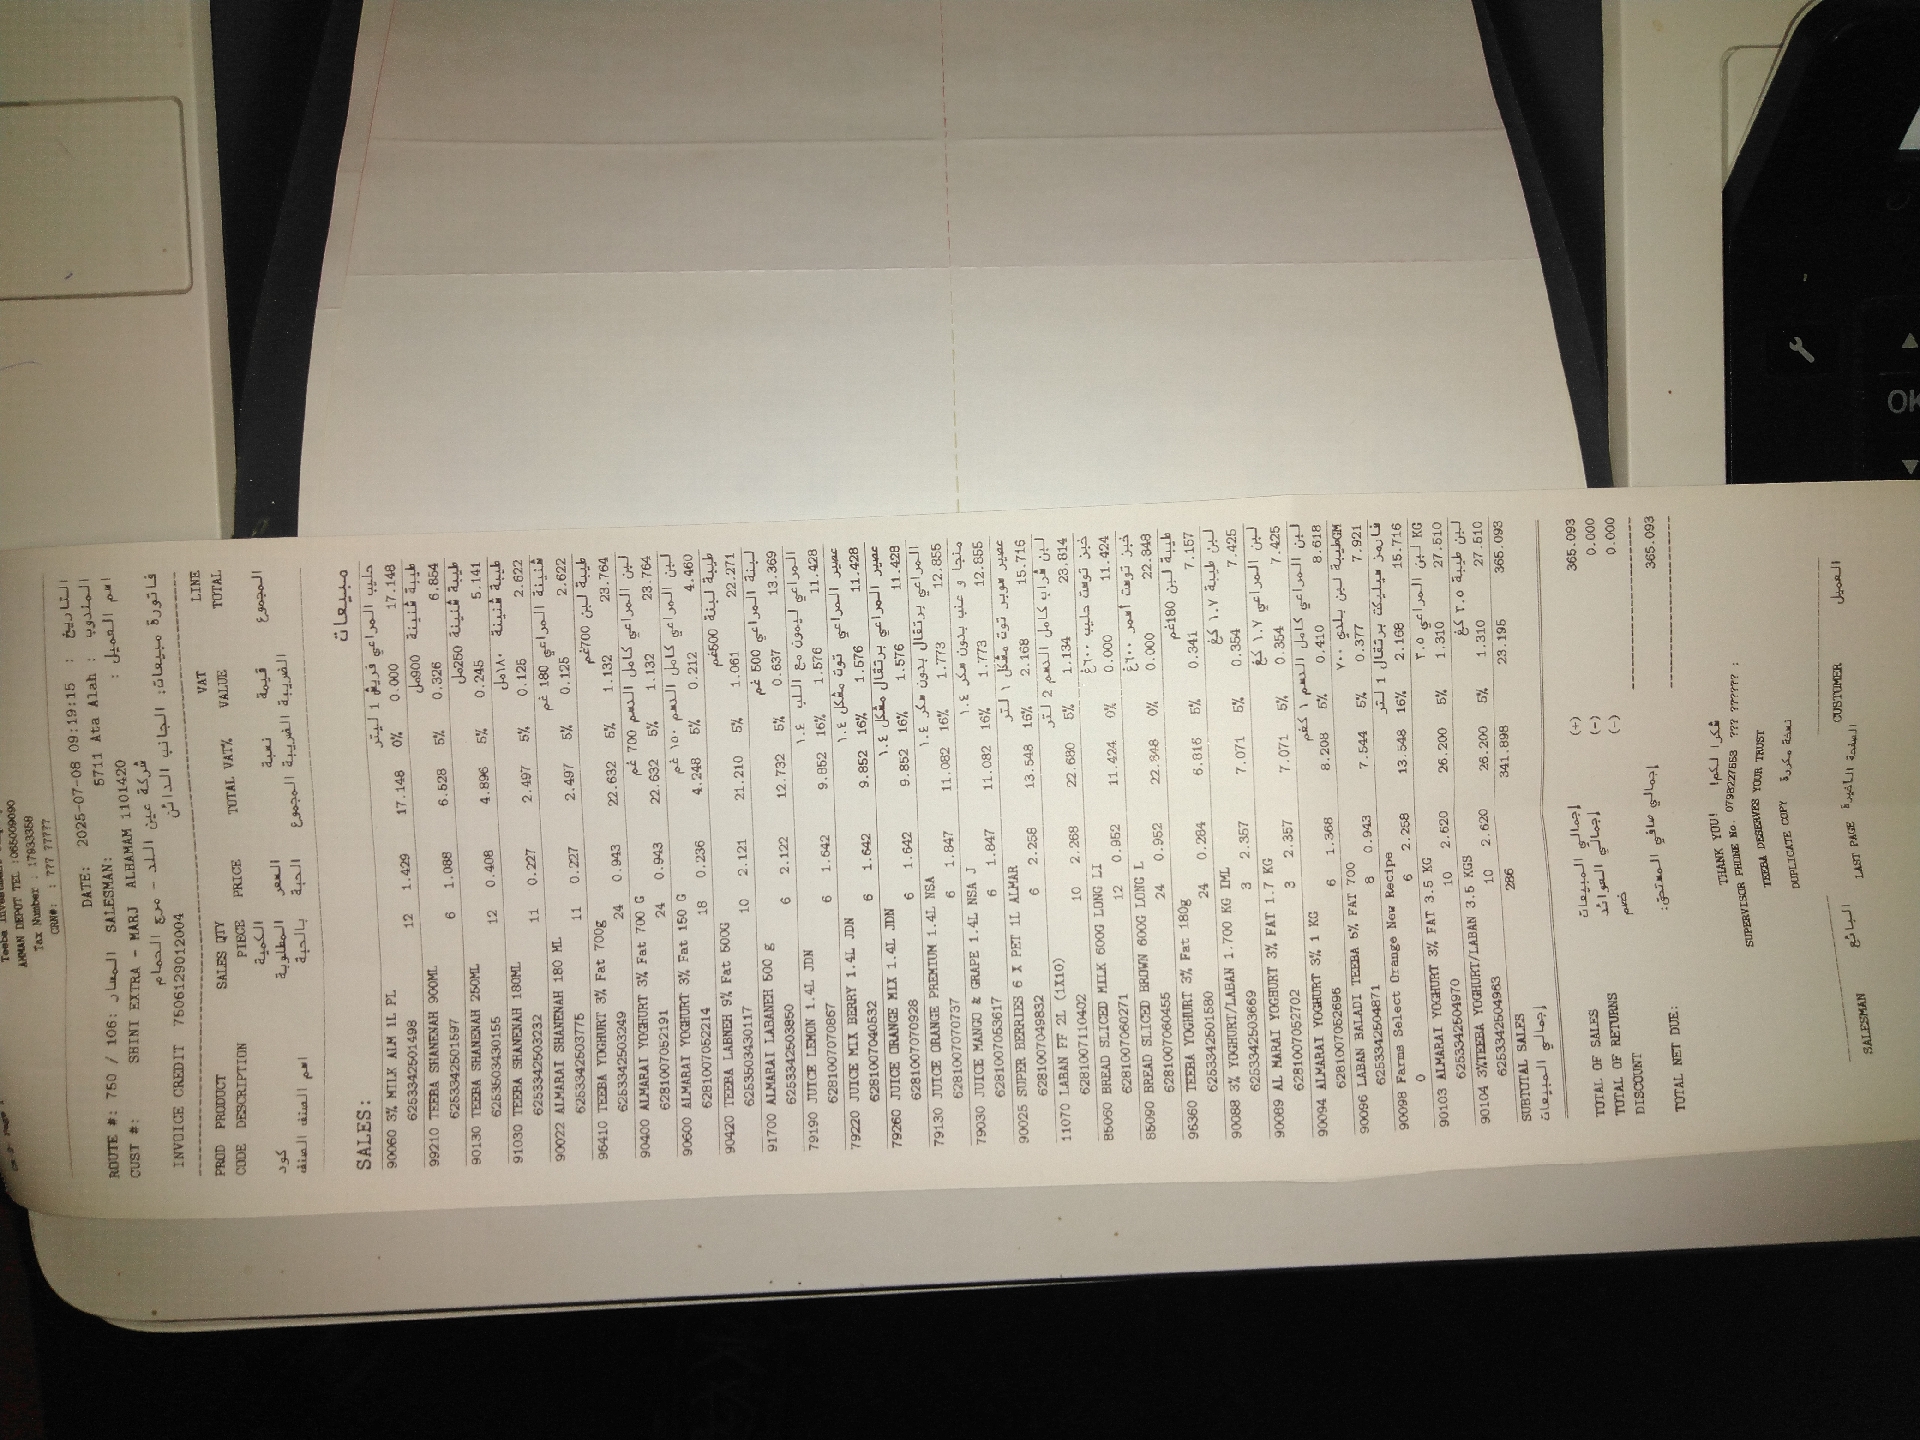 AMMAN DEPOT TEL :065009090
Tax Number : 17933358
GRN#: : ??? ?????
DATE: 2025-07-08 09:19:15 : التاريخ
ROUTE #: 750 / 106: المعان SALESMAN: 5711 Ata Alah : المندوب
CUST #: SHINI EXTRA - MARJ ALHAMAM 1101420 : اسم العميل
شركة عين اللد - مرج الحمام
INVOICE CREDIT 7506129012004 فاتورة مبيعات: الجانب الدائن
PROD PRODUCT SALES QTY PRICE TOTAL VAT% VAT LINE
CODE DESCRIPTION PIECE VALUE TOTAL
كود اسم الصنف الكمية المطلوبة بالحبة السعر الحبة المجموع نسبة الضريبة قيمة الضريبة المجموع
SALES: مبيعات
90060 3% MILK ALM 1L PL حليب المراعي فريش 1 ليتر
6253342501498 12 1.429 17.148 0% 0.000 17.148
99210 TEEBA SHANENAH 900ML طيبة شنينة 900مل
6253342501597 6 1.088 6.528 5% 0.326 6.854
90130 TEEBA SHANENAH 250ML طيبة شنينة 250مل
6253503430155 12 0.408 4.896 5% 0.245 5.141
91030 TEEBA SHANENAH 180ML طيبة شنينة ١٨٠مل
6253342503232 11 0.227 2.497 5% 0.125 2.622
90022 ALMARAI SHANENAH 180 ML شنينة المراعي 180 غم
6253342503775 11 0.227 2.497 5% 0.125 2.622
96410 TEEBA YOGHURT 3% Fat 700g طيبة لبن 700غم
6253342503249 24 0.943 22.632 5% 1.132 23.764
90400 ALMARAI YOGHURT 3% Fat 700 G لبن المراعي كامل الدسم 700 غم
6281007052191 24 0.943 22.632 5% 1.132 23.764
90600 ALMARAI YOGHURT 3% Fat 150 G لبن المراعي كامل الدسم ١٥٠ غم
6281007052214 18 0.236 4.248 5% 0.212 4.460
90420 TEEBA LABNEH 9% Fat 500G طيبة لبنة 500غم
6253503430117 10 2.121 21.210 5% 1.061 22.271
91700 ALMARAI LABANEH 500 g لبنة المراعي 500 غم
6253342503850 6 2.122 12.732 5% 0.637 13.369
79190 JUICE LEMON 1.4L JDN المراعي ليمون مع اللب ١.٤
6281007070867 6 1.642 9.852 16% 1.576 11.428
79220 JUICE MIX BERRY 1.4L JDN عصير المراعي توت مشكل ١.٤
6281007040532 6 1.642 9.852 16% 1.576 11.428
79260 JUICE ORANGE MIX 1.4L JDN عصير المراعي برتقال مشكل ١.٤
6281007070928 6 1.642 9.852 16% 1.576 11.428
79130 JUICE ORANGE PREMIUM 1.4L NSA المراعي برتقال بدون سكر ١.٤
6281007070737 6 1.847 11.082 16% 1.773 12.855
79030 JUICE MANGO & GRAPE 1.4L NSA J منجا و عنب بدون سكر ١.٤
6281007053617 6 1.847 11.082 16% 1.773 12.855
90025 SUPER BERRIES 6 X PET 1L ALMAR عصير سوبر توت مشكل ١ لتر
6281007049832 6 2.258 13.548 16% 2.168 15.716
11070 LABAN FF 2L (1X10) لبن شراب كامل الدسم 2 لتر
6281007110402 10 2.268 22.680 5% 1.134 23.814
85060 BREAD SLICED MILK 600G LONG LI خبز توست حليب ٦٠٠غ
6281007060271 12 0.952 11.424 0% 0.000 11.424
85090 BREAD SLICED BROWN 600G LONG L خبز توست أسمر ٦٠٠غ
6281007060455 24 0.952 22.848 0% 0.000 22.848
96360 TEEBA YOGHURT 3% Fat 180g طيبة لبن 180غم
6253342501580 24 0.284 6.816 5% 0.341 7.157
90088 3% YOGHURT/LABAN 1.700 KG IML لبن طيبة ١.٧ كغ
6253342503669 3 2.357 7.071 5% 0.354 7.425
90089 AL MARAI YOGHURT 3% FAT 1.7 KG لبن المراعي ١.٧ كغ
6281007052702 3 2.357 7.071 5% 0.354 7.425
90094 ALMARAI YOGHURT 3% 1 KG لبن المراعي كامل الدسم ١ كغم
6281007052695 6 1.368 8.208 5% 0.410 8.618
90096 LABAN BALADI TEEBA 5% FAT 700 طيبة لبن بلدي ٧٠٠GM
6253342504871 8 0.943 7.544 5% 0.377 7.921
90098 Farms Select Orange New Recipe فارمز سيليكت برتقال 1 لتر
0 6 2.258 13.548 16% 2.168 15.716
90103 ALMARAI YOGHURT 3% FAT 3.5 KG لبن المراعي ٣.٥ KG
6253342504970 10 2.620 26.200 5% 1.310 27.510
90104 3%TEEBA YOGHURT/LABAN 3.5 KGS لبن طيبة ٣.٥ كغ
6253342504963 10 2.620 26.200 5% 1.310 27.510
SUBTOTAL SALES 286 341.898 23.195 365.093
إجمالي المبيعات
TOTAL OF SALES إجمالي المبيعات (+) 365.093
TOTAL OF RETURNS إجمالي العوائد (-) 0.000
DISCOUNT خصم (-) 0.000
TOTAL NET DUE: إجمالي صافي المستحق: 365.093
THANK YOU! شكرا لكم!
SUPERVISOR PHONE No. 0798227558 ??? ?????? :
TEEBA DESERVES YOUR TRUST
DUPLICATE COPY نسخة مكررة
SALESMAN البائع LAST PAGE الصفحة الأخيرة CUSTOMER العميل
OK